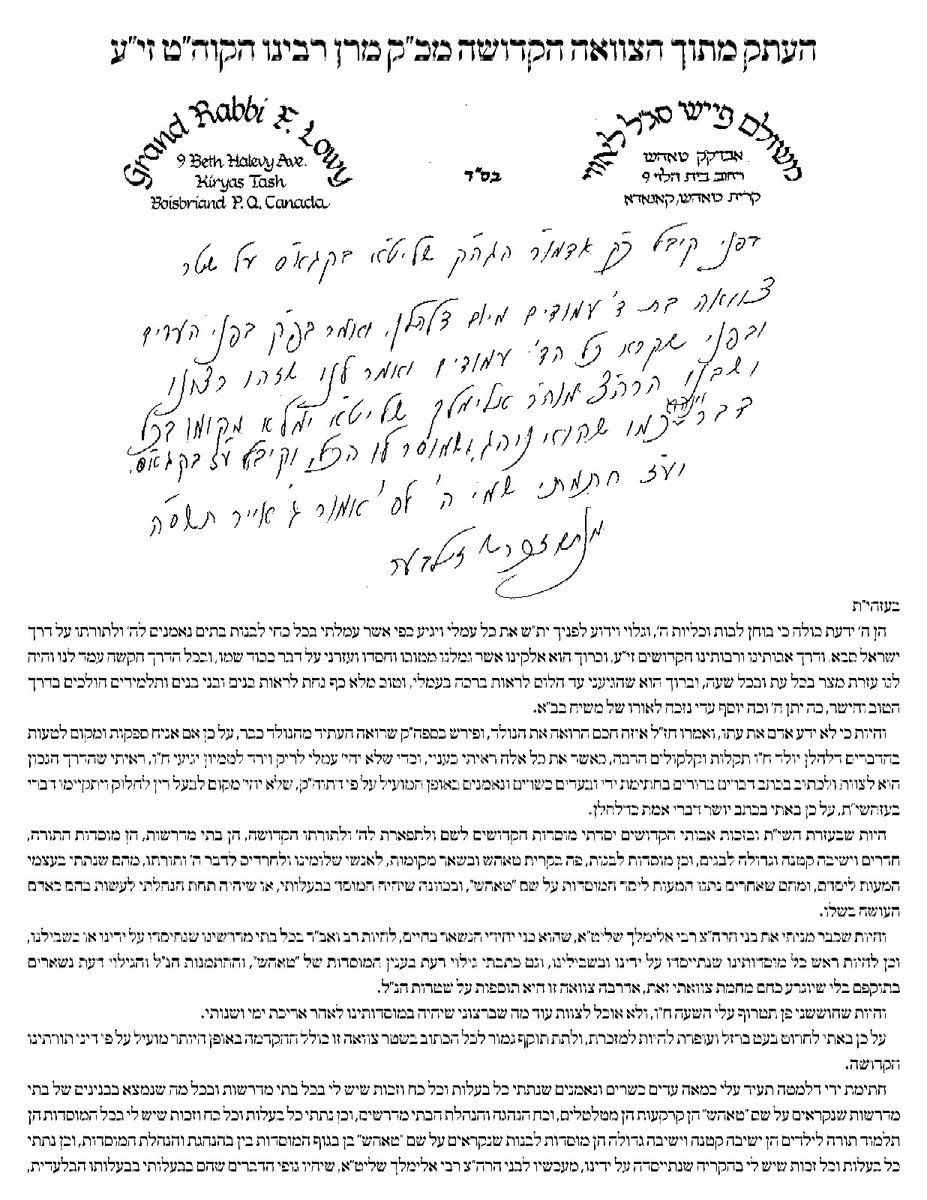 העתק מתוך הצוואה הקדושה מכ"ק מרן רבינו הקוה"ט זי"ע
Grand Rabbi F. Lowy
9 Beth Halevy Ave.
Kiryas Tash
Boisbriand P.Q. Canada
בס"ד
משולם פייש סג"ל לאווי
אבדקק טאהש
רחוב בית הלוי 9
קרית טאהש, קאנאדא
בפני קיבל כ"ק אדמו"ר הגה"ק שליט"א בקגא"ס על שטר
צוואה בת ד' עמודים מיום דלהלן, ואמר בפ"ק בפני העדים
ובפני שקרא כל הד' עמודים ואמר לנו שזהו רצונו
ושבנו הרה"צ מוהר"ר אלימלך שליט"א ימלא מקומו בכל
דבר כמו שהוא נוהג ושמוסר לו הכל, וקיבל ע"ז בקגא"ס.
ועז חתמתי שמי ה' לס' אמור ג' אייר תשס"ה
בעזהי"ת
הן ה' ידעת כולה כי בוחן לבות וכליות ה', וגלוי וידוע לפניך ית"ש את כל עמלי ויגיע כפי אשר עמלתי בכל כחי לבנות בתים נאמנים לה' ולתורתו על דרך
ישראל סבא, ודרך אבותינו ורבותינו הקדושים זי"ע, וברוך הוא אלקינו אשר גמלנו מטובו וחסדו ועזרני על דבר כבוד שמו, ובכל הדרך הקשה עמד לנו והיה
לנו עזרת מצר בכל עת ובכל שעה, וברוך הוא שהגיעני עד הלום לראות ברכה בעמלי, וטוב מלא כף נחת לראות בנים ובני בנים ותלמידים הולכים בדרך
הטוב והישר, כה יתן ה' וכה יוסף עדי נזכה לאורו של משיח בב"א.
והיות כי לא ידע אדם את עתו, ואמרו חז"ל איזה חכם הרואה את הנולד, ופירש בספה"ק שרואה העתיד מהנולד כבר, על כן אם אניח ספקות ומקום לטעות
בהדברים דלהלן יולד ח"ו תקלות וקלקולים הרבה, כאשר את כל אלה ראיתי בעניי, וכדי שלא יהי' עמלי לריק וירד לטמיון יגיעי ח"ו, ראיתי שהדרך הנכון
הוא לצוות ולכתוב בכתב דברים ברורים בחתימת ידי ובעדים כשרים ונאמנים באופן המועיל על פי דתוה"ק, שלא יהי' מקום לבעל דין לחלוק ויתקיימו דברי
בעזהשי"ת, על כן באתי בכתב יושר דברי אמת כדלהלן.
היות שבעזרת השי"ת ובזכות אבותי הקדושים יסדתי מוסדות הקדושים לשם ולתפארת לה' ולתורתו הקדושה, הן בתי מדרשות, הן מוסדות התורה,
חדרים וישיבה קטנה וגדולה לבנים, וכן מוסדות לבנות, פה בקרית טאהש ובשאר מקומות, לאנשי שלומינו ולחרדים לדבר ה' ותורתו, מהם שנתתי בעצמי
המעות ליסדם, ומהם שאחרים נתנו המעות ליסד המוסדות על שם "טאהש", ובכוונה שיהיה המוסד בבעלותי, או שיהיה תחת הנהלתי לעשות בהם כאדם
העושה בשלו.
והיות שכבר מניתי את בני הרה"צ רבי אלימלך שליט"א, שהוא בני יחידי הנשאר בחיים, להיות רב ואב"ד בכל בתי מדרשינו שנתיסדו על ידינו או בשבילנו,
וכן להיות ראש כל מוסדותינו שנתייסדו על ידינו ובשבילינו, וגם כתבתי גילוי דעת בענין המוסדות של "טאהש", וההתמנות הנ"ל והגילוי דעת נשארים
בתוקפם בלי שיוגרע כחם מחמת צוואתי זאת, אדרבה צוואה זו היא תוספות על שטרות הנ"ל.
והיות שחוששני פן תטרוף עלי השעה ח"ו, ולא אוכל לצוות עוד מה שברצוני שיהיה במוסדותינו לאחר אריכת ימי ושנותי.
על כן באתי לחרוט בעט ברזל ועופרת להיות למזכרת, ולתת תוקף גמור לכל הכתוב בשטר צוואה זו כולל ההקדמה באופן היותר מועיל על פי דיני תורתינו
הקדושה.
חתימת ידי דלמטה תעיד עלי כמאה עדים כשרים ונאמנים שנתתי כל בעלות וכל כח וזכות שיש לי בכל בתי מדרשות ובכל מה שנמצא בבנינים של בתי
מדרשות שנקראים על שם "טאהש" הן קרקעות הן מטלטלים, וכח הנהגה והנהלת הבתי מדרשים, וכן נתתי כל בעלות וכל כח וזכות שיש לי בכל המוסדות הן
תלמוד תורה לילדים הן ישיבה קטנה וישיבה גדולה הן מוסדות לבנות שנקראים על שם "טאהש" בן בגוף המוסדות בין בהנהגת והנהלת המוסדות, וכן נתתי
כל בעלות וכל זכות שיש לי בהקריה שנתייסדה על ידינו, מעכשיו לבני הרה"צ רבי אלימלך שליט"א, שיהיו גופי הדברים שהם בבעלותי בבעלותו הבלעדית,